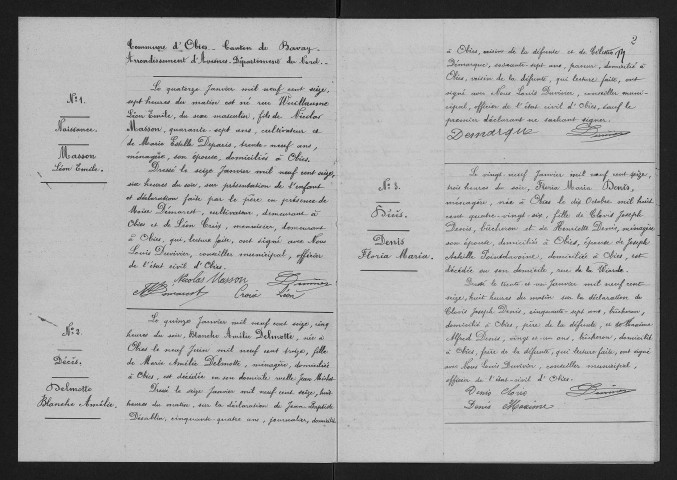 Commune d'Obies - Canton de Bavay -
Arrondissement d'Avesnes. Département du Nord.
N° 1.
Naissance.
Masson
Léon Emile.
Le quatorze Janvier mil neuf cent seize,
sept heures du matin est né rue
Léon Emile, du sexe masculin, fils de Nicolas
Masson, quarante-sept ans, cultivateur et
de Marie Estelle Deparis, trente-neuf ans,
ménagère, son épouse, domiciliés à Obies.
Dressé le seize Janvier mil neuf cent seize,
six heures du soir, sur présentation de l'enfant
et déclaration faite par le père en présence de
Démaret, cultivateur, demeurant à
Obies et de Léon Croix, menuisier, demeurant
à Obies, qui, lecture faite, ont signé avec Nous
Louis Duvivier, conseiller municipal, officier
de l'état civil d'Obies.
Nicolas Masson
Croix Léon
N° 2.
Décès.
Delmotte
Blanche Amélie.
Le quinze Janvier mil neuf cent seize, cinq
heures du soir, Blanche Amélie Delmotte, née à
Obies le neuf Juin mil neuf cent treize, fille
de Marie Amélie Delmotte, ménagère, domiciliée
à Obies, est décédée en son domicile ruelle Jean
Dressé le seize Janvier mil neuf cent seize, huit
heures du matin, sur la déclaration de Jean-Baptiste
cinquante-quatre ans, journalier, domicilié
2
à Obies, voisin de la défunte et de
Démarque, soixante-sept ans, domicilié à
Obies, voisin de la défunte, qui lecture faite, ont
signé avec Nous Louis Duvivier, conseiller muni-
cipal, officier de l'état civil d'Obies, sauf le
premier déclarant ne sachant signer.
Demarque
N° 3.
Décès.
Denis
Floria Maria.
Le vingt-neuf Janvier mil neuf cent seize,
trois heures du soir, Floria Maria Denis,
ménagère, née à Obies le dix Octobre mil huit
cent quatre-vingt-six, fille de Clovis Joseph
Denis, bûcheron et de Henriette Denis, ménagère
son épouse, domiciliés à Obies, épouse de Joseph
domicilié à Obies, est
décédée en son domicile, rue de la
Dressé le trente et un Janvier mil neuf cent
seize, huit heures du matin sur la déclaration de
Clovis Joseph Denis, cinquante-sept ans, bûcheron,
domicilié à Obies, père de la défunte, et de Maxime
Alfred Denis, vingt-et-un ans, bûcheron, domicilié
à Obies, frère de la défunte, qui lecture faite, ont signé
avec Nous Louis Duvivier, conseiller municipal,
officier de l'état-civil d'Obies.
Denis
Denis Maxime